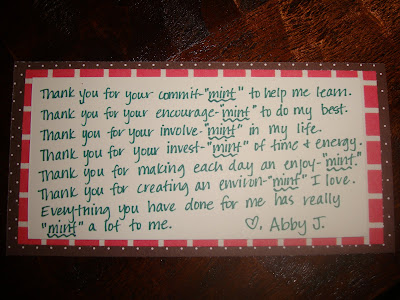 Thank you for your commit-"mint" to help me learn.
Thank you for your encourage-"mint" to do my best.
Thank you for your involve-"mint" in my life.
Thank you for your invest-"mint" of time & energy.
Thank you for making each day an enjoy-"mint."
Thank you for creating an environ-"mint" I love.
Everything you have done for me has really
"mint" a lot to me. ♡, Abby J.